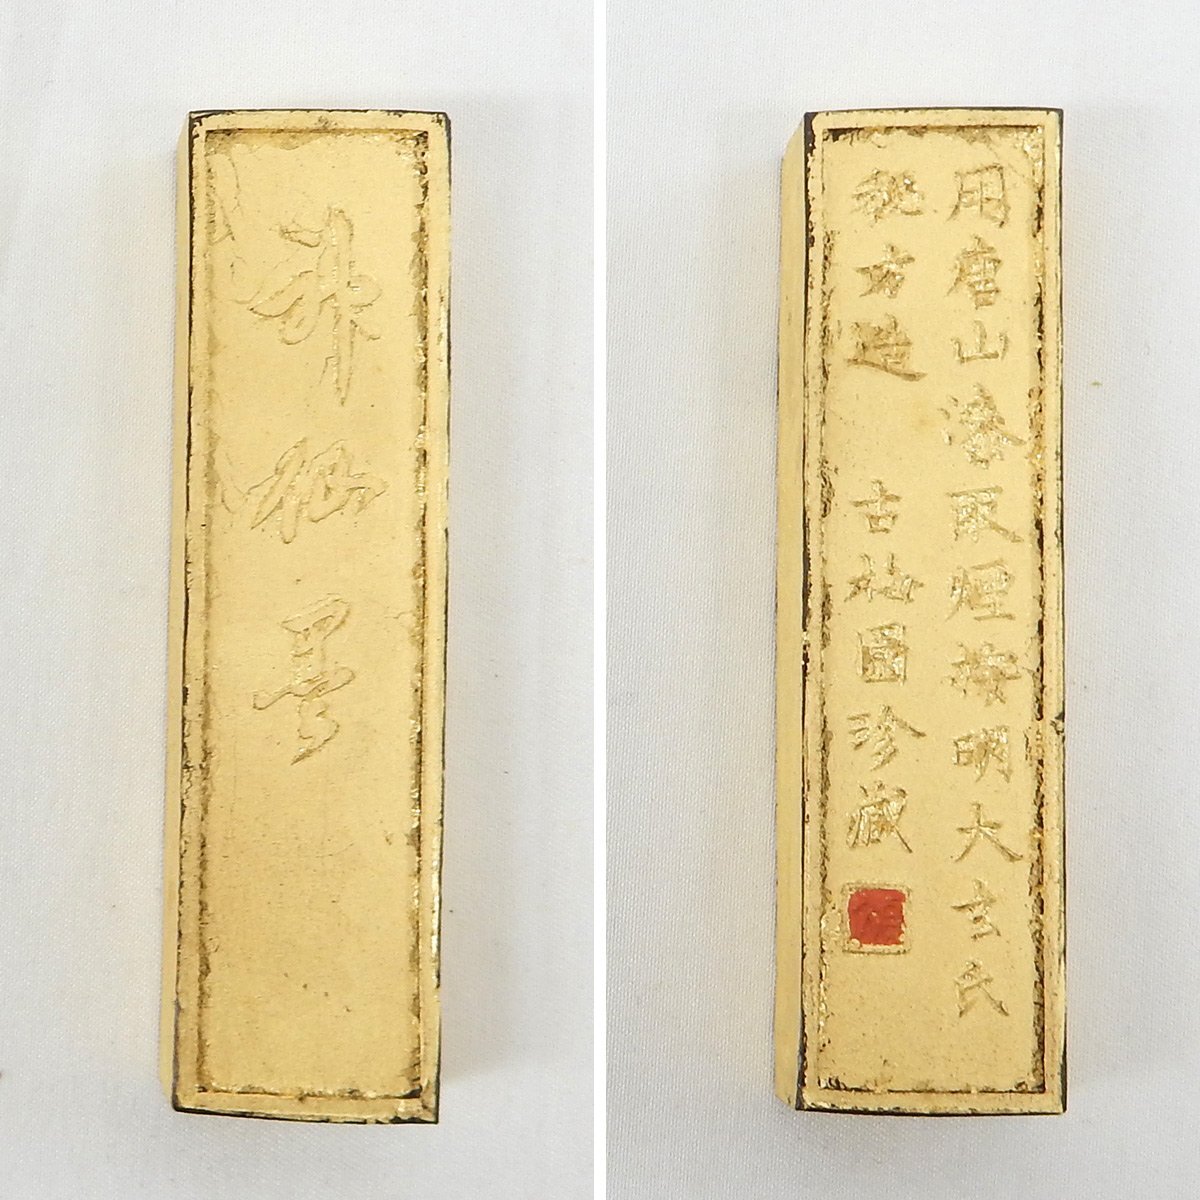 墨
用唐山漆取煙按明大玄氏
秘方造 古梅園珍藏